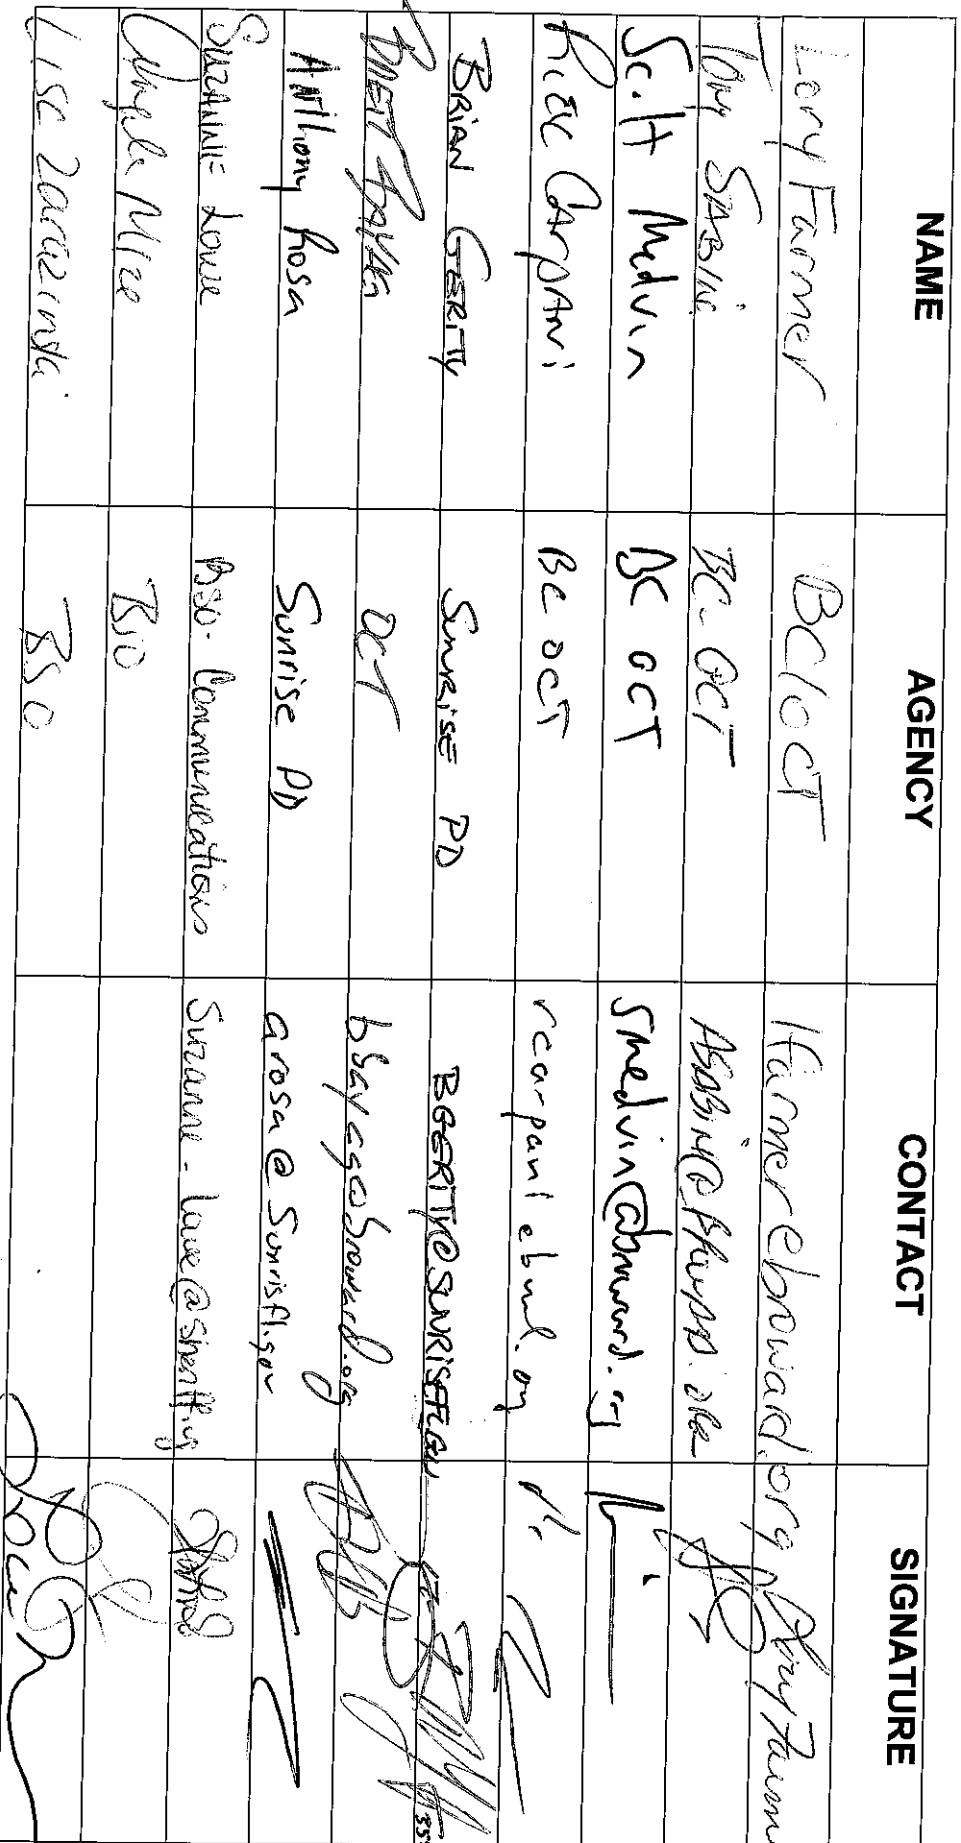 NAME AGENCY CONTACT SIGNATURE
Lory Farmer BC/OCT lfarmer@broward.org Lory Farm
Tony SABINI BC-OCT
Scott Medvin BC OCT smedvin@broward.org
Rick CARPANi BC OCT rcarpani@
BRIAN GERITY SUNRISE PD BGERITY@SUNRISEFL.GOV
BRETT BAYAG OCT bbayag@broward.org
Anthony Rosa Sunrise PD arosa@Sunrisefl.gov
SUZANNE Lowe BSO-Communications Suzanne-Lowe@sheriff.org
Angela Mize BSO
Lisa Zarazinski BSO
355